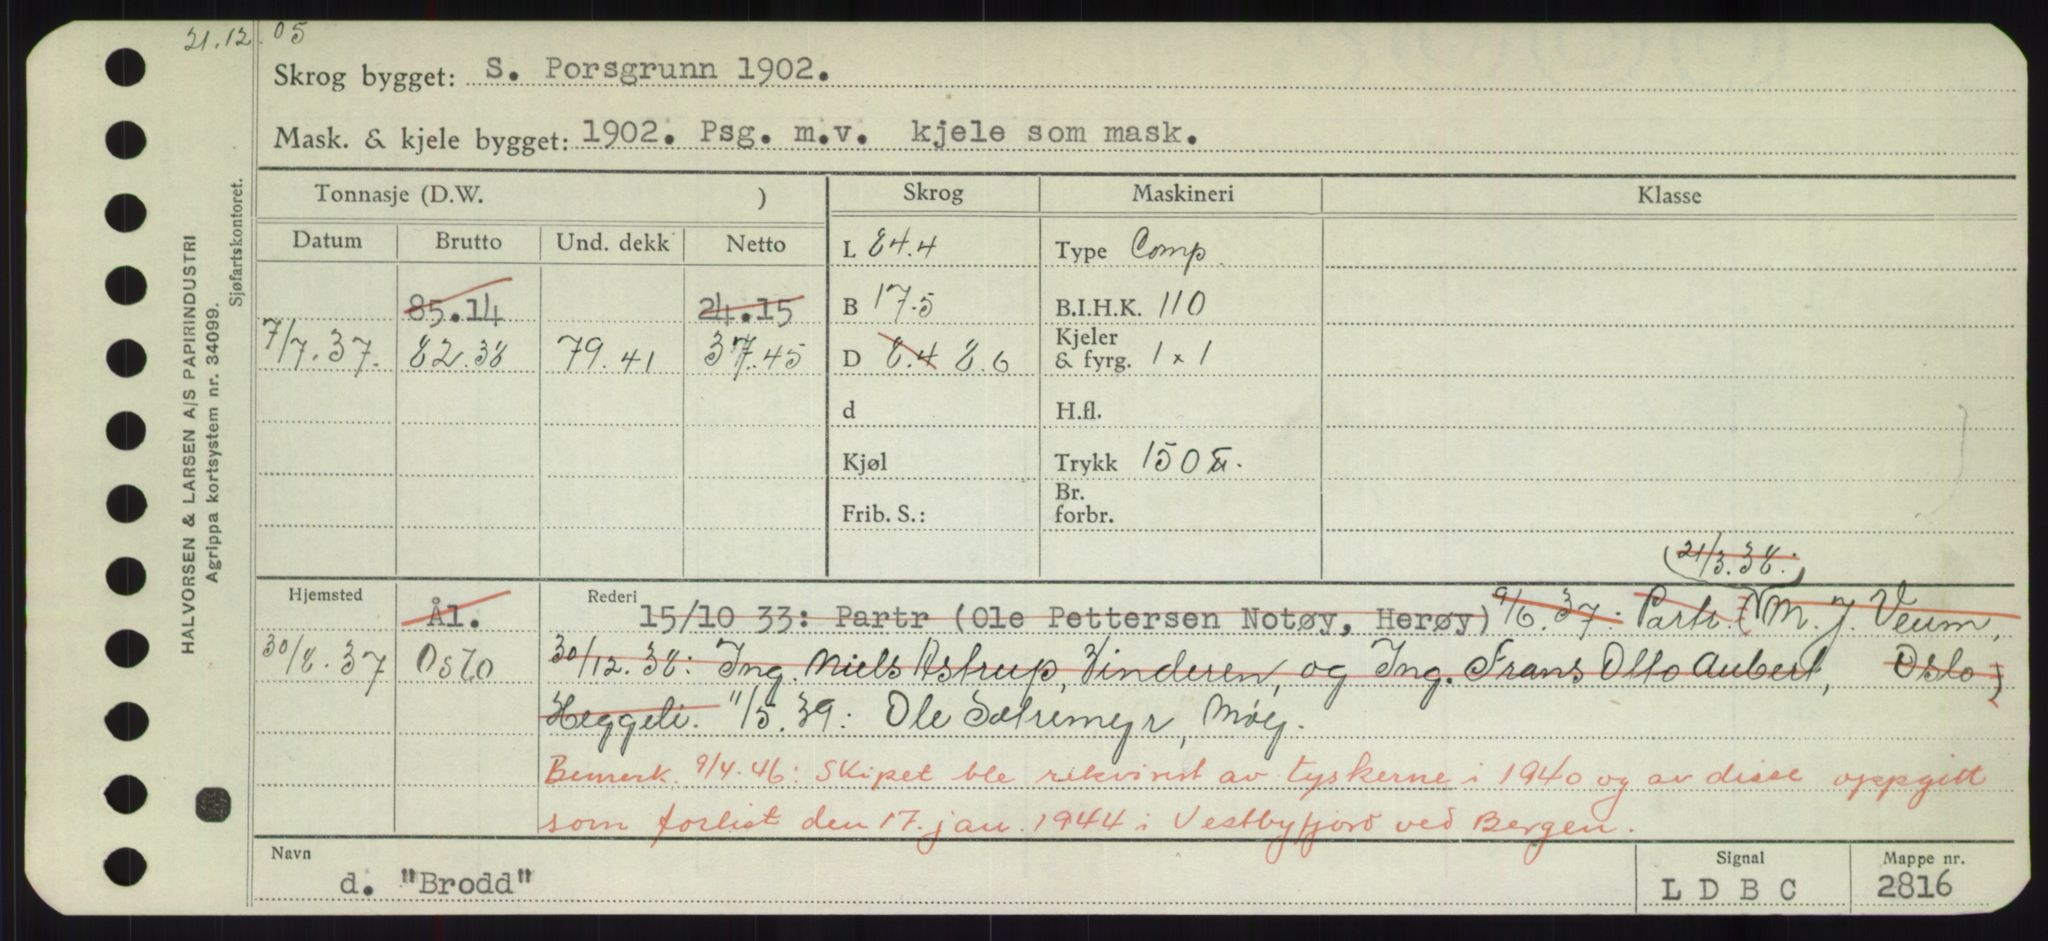 21.12.05
Skrog bygget: S. Porsgrunn 1902.
Mask. & kjele bygget: 1902. Psg. m.v. kjele som mask.
Tonnasje (D.W. ) Skrog Maskineri Klasse
Datum Brutto Und. dekk Netto
L 84.4 Type Comp.
85.14 24.15 B 17.5 B.I.H.K. 110
7/7.37. 82.38 79.41 37.45 D 8.4 8.6 Kjeler & fyrg. 1 x 1
d H.fl.
Kjøl Trykk 150
Frib. S.: Br. forbr.
21/3.38.
Hjemsted Rederi
Ål. 15/10 33: Partr (Ole Pettersen Notøy, Herøy) 9/6.37: Partr. (M. J. Veum,
30/8.37 Oslo 30/12.38: Ing. Niels Astrup, Vinderen, og Ing. Frans Otto Aubert, Oslo)
Heggeli. 11/5.39: Ole Sætremyr, Måløy.
Bemerk. 9/4.46: Skipet ble rekvirert av tyskerne i 1940 og av disse oppgitt
som forlist den 17. jan. 1944 i Vestbyfjord ved Bergen.
Navn Signal Mappe nr.
d. "Brodd" L D B C 2816
HALVORSEN & LARSEN A/S PAPIRINDUSTRI
Agrippa kortsystem nr. 34099.
Sjøfartskontoret.